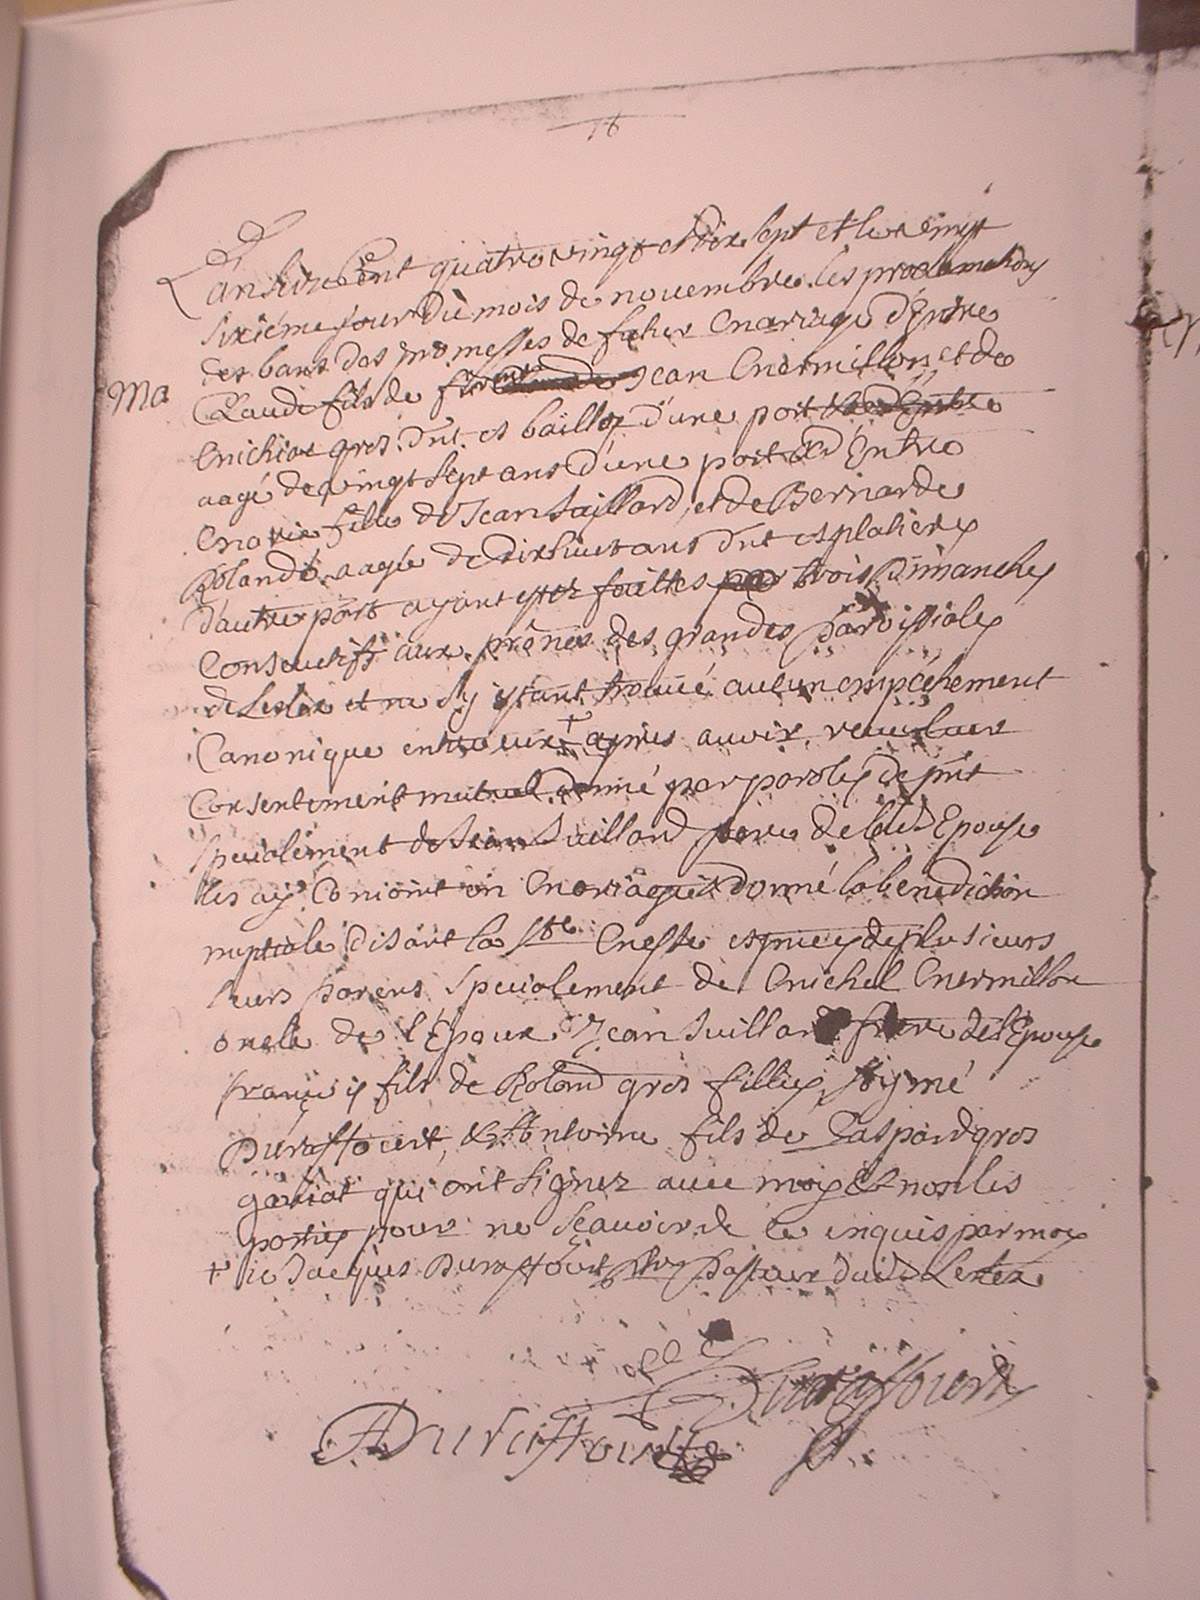 18
L'an seize Cent quatre vingt et dix sept et le vingt
sixiéme jour du mois de novembre les proclamations
des bans des promesses de futur Mariage d'Entre
Ma
Claude fils de Jean Mermillon et de
Michiere gros d'une part
aagé de vingt sept ans d'une part Et d'Entre
Marie fille de Jean Juillard, et de Bernarde
Rolande aagée de dixhuict ans
d'autre part ayant estez faittes par trois Dimanches
Consecutifs aux prônes des grandes parroissiales
de Leslex et ne s'y estant trouué aucun empéchement
Canonique entre eux + apres auoir receu leur
Consentement mutuel donné par paroles de pnt
specialement de Jean Juillard pere de lad Epouse
les ay Conioint en Mariage et donné la benediction
nuptiale disant la Ste Messe es pnces de plusieurs
leurs parens specialement de Michel Mermillon
oncle de l'Epoux Jean Juillard frere de l'Epouse
françois fils de Roland gros fillex, Aymé
Duraffourt, & Antoine fils de Gaspard gros
gaviat qui ont signez auec moy & non les
parties pour ne sçauoir de ce enquis par moy
+ ie Jacques Duraffourt pbre pasteur dud Leslex
Duraffourt
A Duraffourt